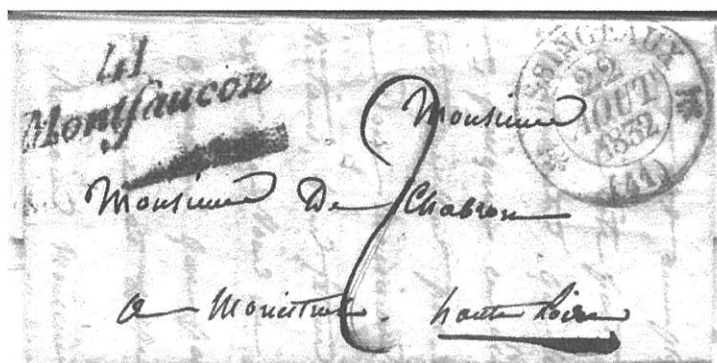 41
Montfaucon
YSSINGEAUX
22
AOUT
1832
(41)
2
Monsieur
Monsieur De Chabron
a Monistrol. haute Loire